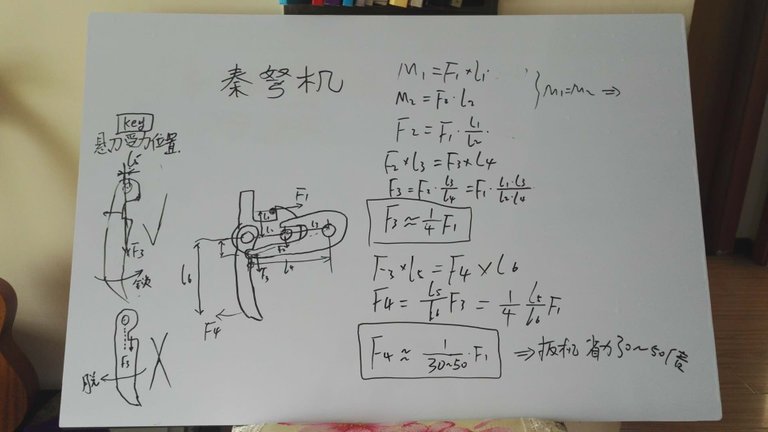 秦弩机
key
悬刀受力位置
l5
F3
锁
F3
脱
F1
l1
l2
l3
F2
F3
l4
l6
F4
M1=F1×l1
M2=F2·l2
}M1=M2 ⇒
F2=F1·l1/l2
F2×l3=F3×l4
F3=F2·l3/l4=F1·l1·l3/l2·l4
F3≈1/4 F1
F3×l5=F4×l6
F4=l5/l6 F3=1/4 l5/l6 F1
F4≈1/30~50·F1
⇒扳机省力30~50倍